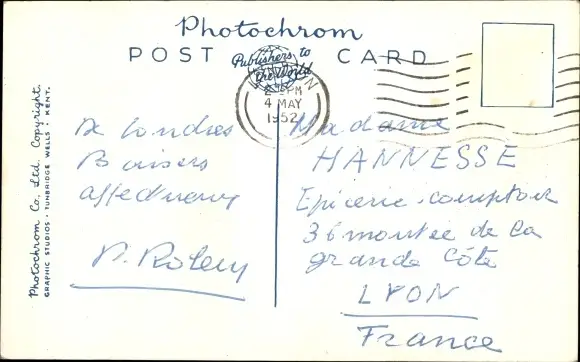 Photochrom
POST CARD
Publishers to
the World
LONDON
PM
4 MAY
1952
Photochrom Co. Ltd. Copyright.
GRAPHIC STUDIOS · TUNBRIDGE WELLS · KENT.
De Londres
Baisers
affectueux
Madame
HANNESSE
Epicerie-comptoir
36 montée de la
grande Côte
LYON
France